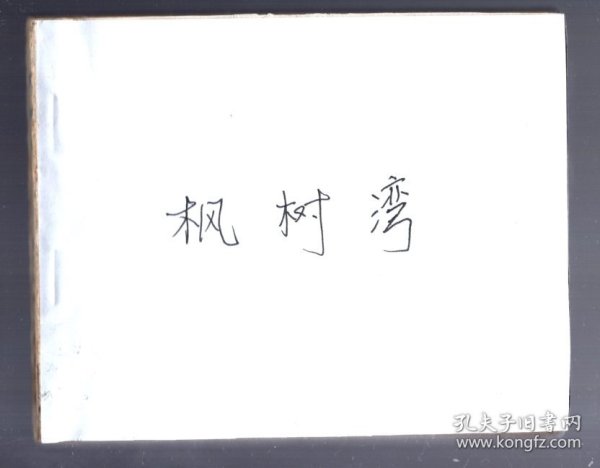 枫树湾
孔夫子旧书网
www.kongfz.com